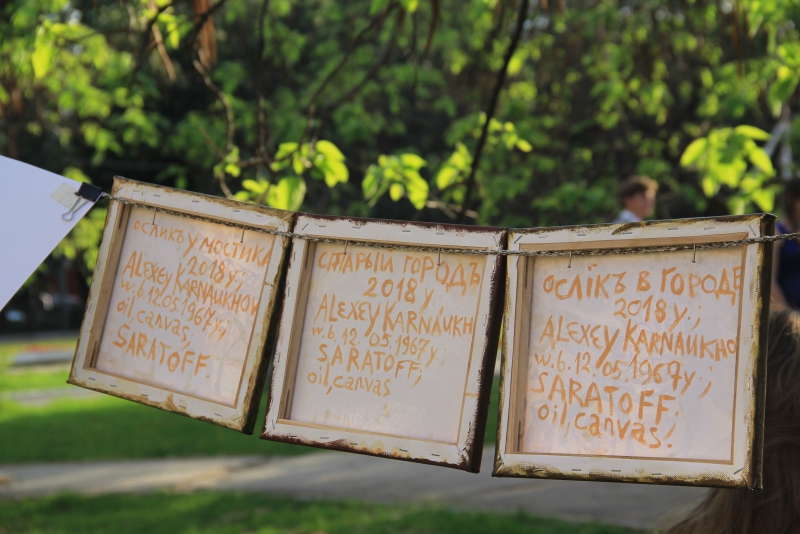 осликъ у мостика
2018 у;
ALEXEY KARNAUKHOV
w.b.12.05.1967 y;
oil, canvas,
SARATOFF.
СТАРЫЙ ГОРОДЪ
2018 y
ALEXEY KARNAUKH
w.b. 12. 05.1967 y;
SARATOFF;
oil, canvas
ОСЛІКЪ В ГОРОДЕ
2018 y.;
ALEXEY KARNAUKHO
w.b. 12 05.1967 y;
SARATOFF;
oil, canvas.